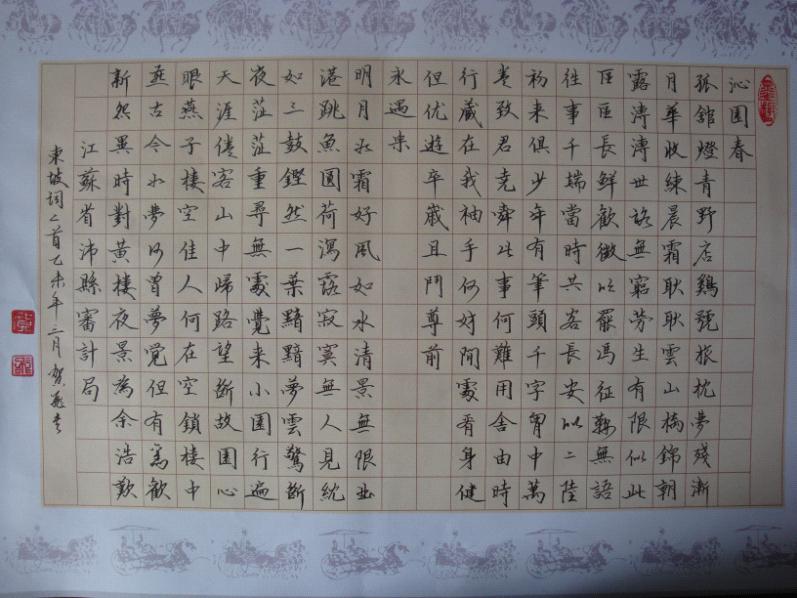 沁園春
孤舘燈青野店鷄號旅枕夢殘漸
月華收練晨霜耿耿雲山摛錦朝
露漙漙世路無窮勞生有限似此
區區長鮮歡微吟罷馮征鞍無語
往事千端當時共客長安似二陸
初来俱少年有筆頭千字胷中萬
卷致君堯舜此事何難用舍由時
行藏在我袖手何妨閒處看身健
但优遊卒歲且鬥尊前
永遇樂
明月如霜好風如水清景無限曲
港跳魚圓荷瀉露寂寞無人見紞
如三鼓鏗然一葉黯黯夢雲驚斷
夜茫茫重尋無處覺来小園行遍
天涯倦客山中歸路望斷故園心
眼燕子樓空佳人何在空鎖樓中
燕古今如夢何曾夢覺但有舊歡
新怨異時對黃樓夜景為余浩歎
江蘇省沛縣審計局
東坡詞二首乙未年三月賀